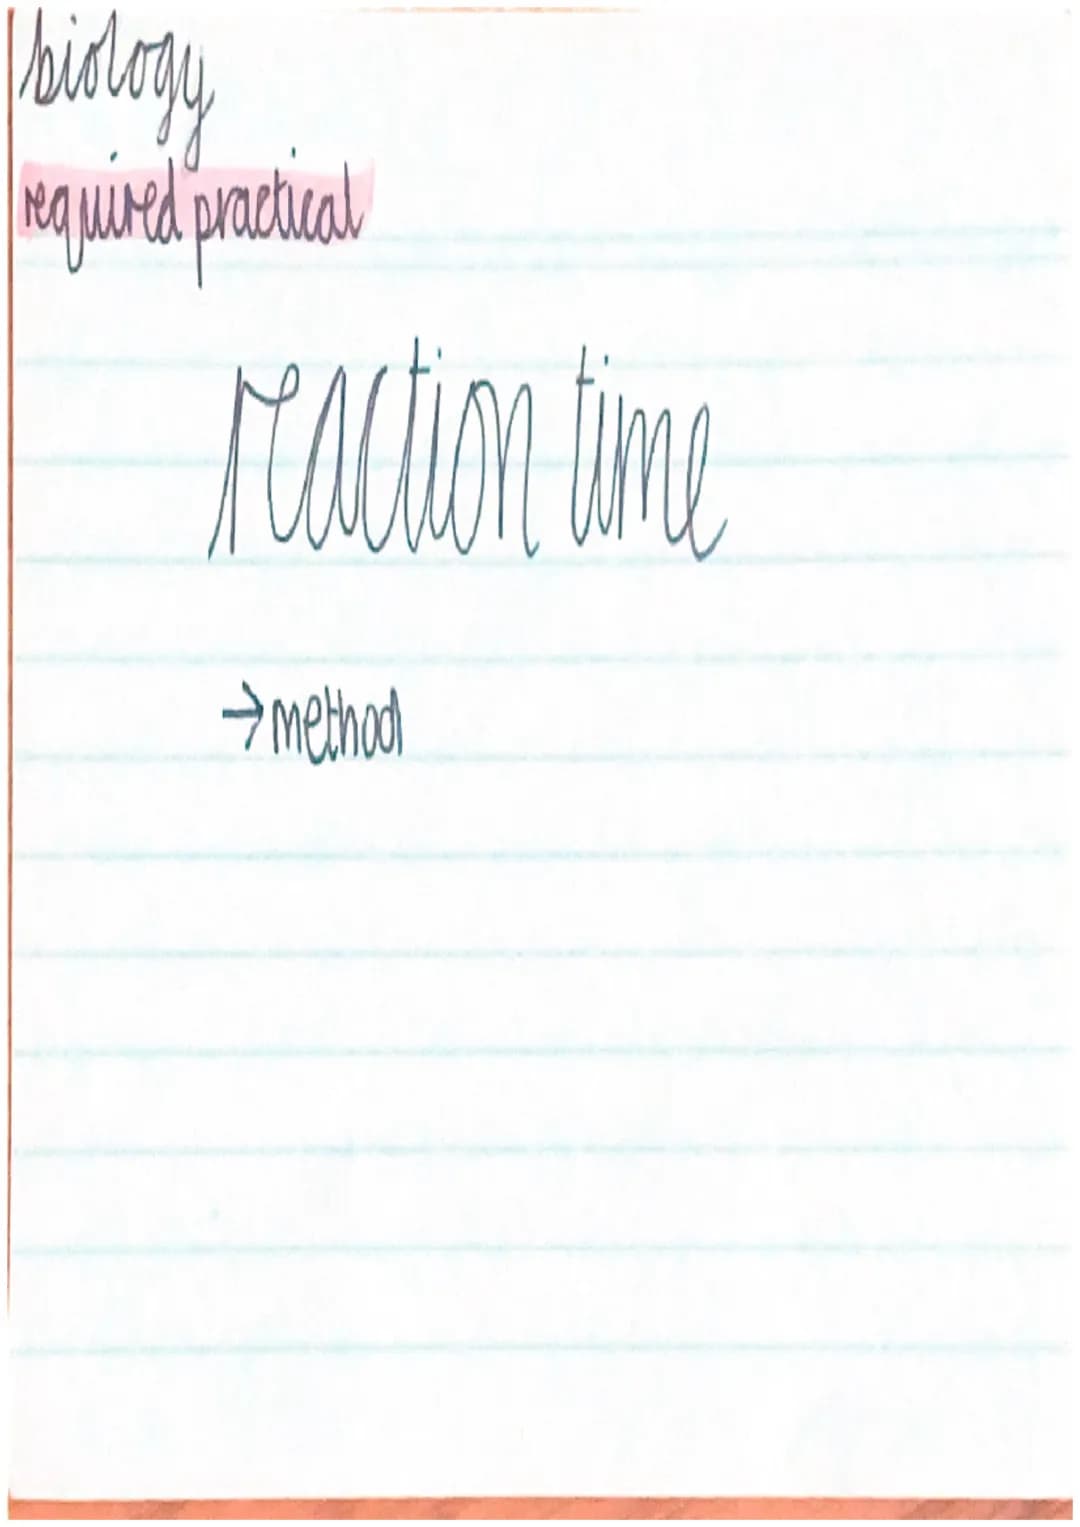 biology
required practical
reaction time
→method